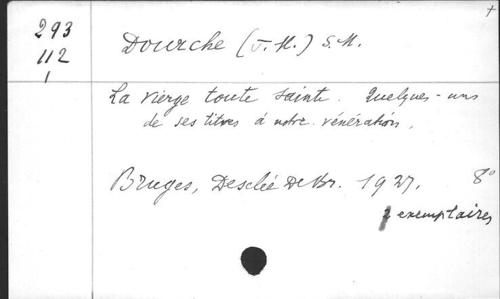 293
112
1
Dourche (J.-M.) S.M.
La vierge toute sainte. Quelques-uns
de ses titres à notre vénération.
Bruges, Desclée De Br. 1927. 8°
2 exemplaires